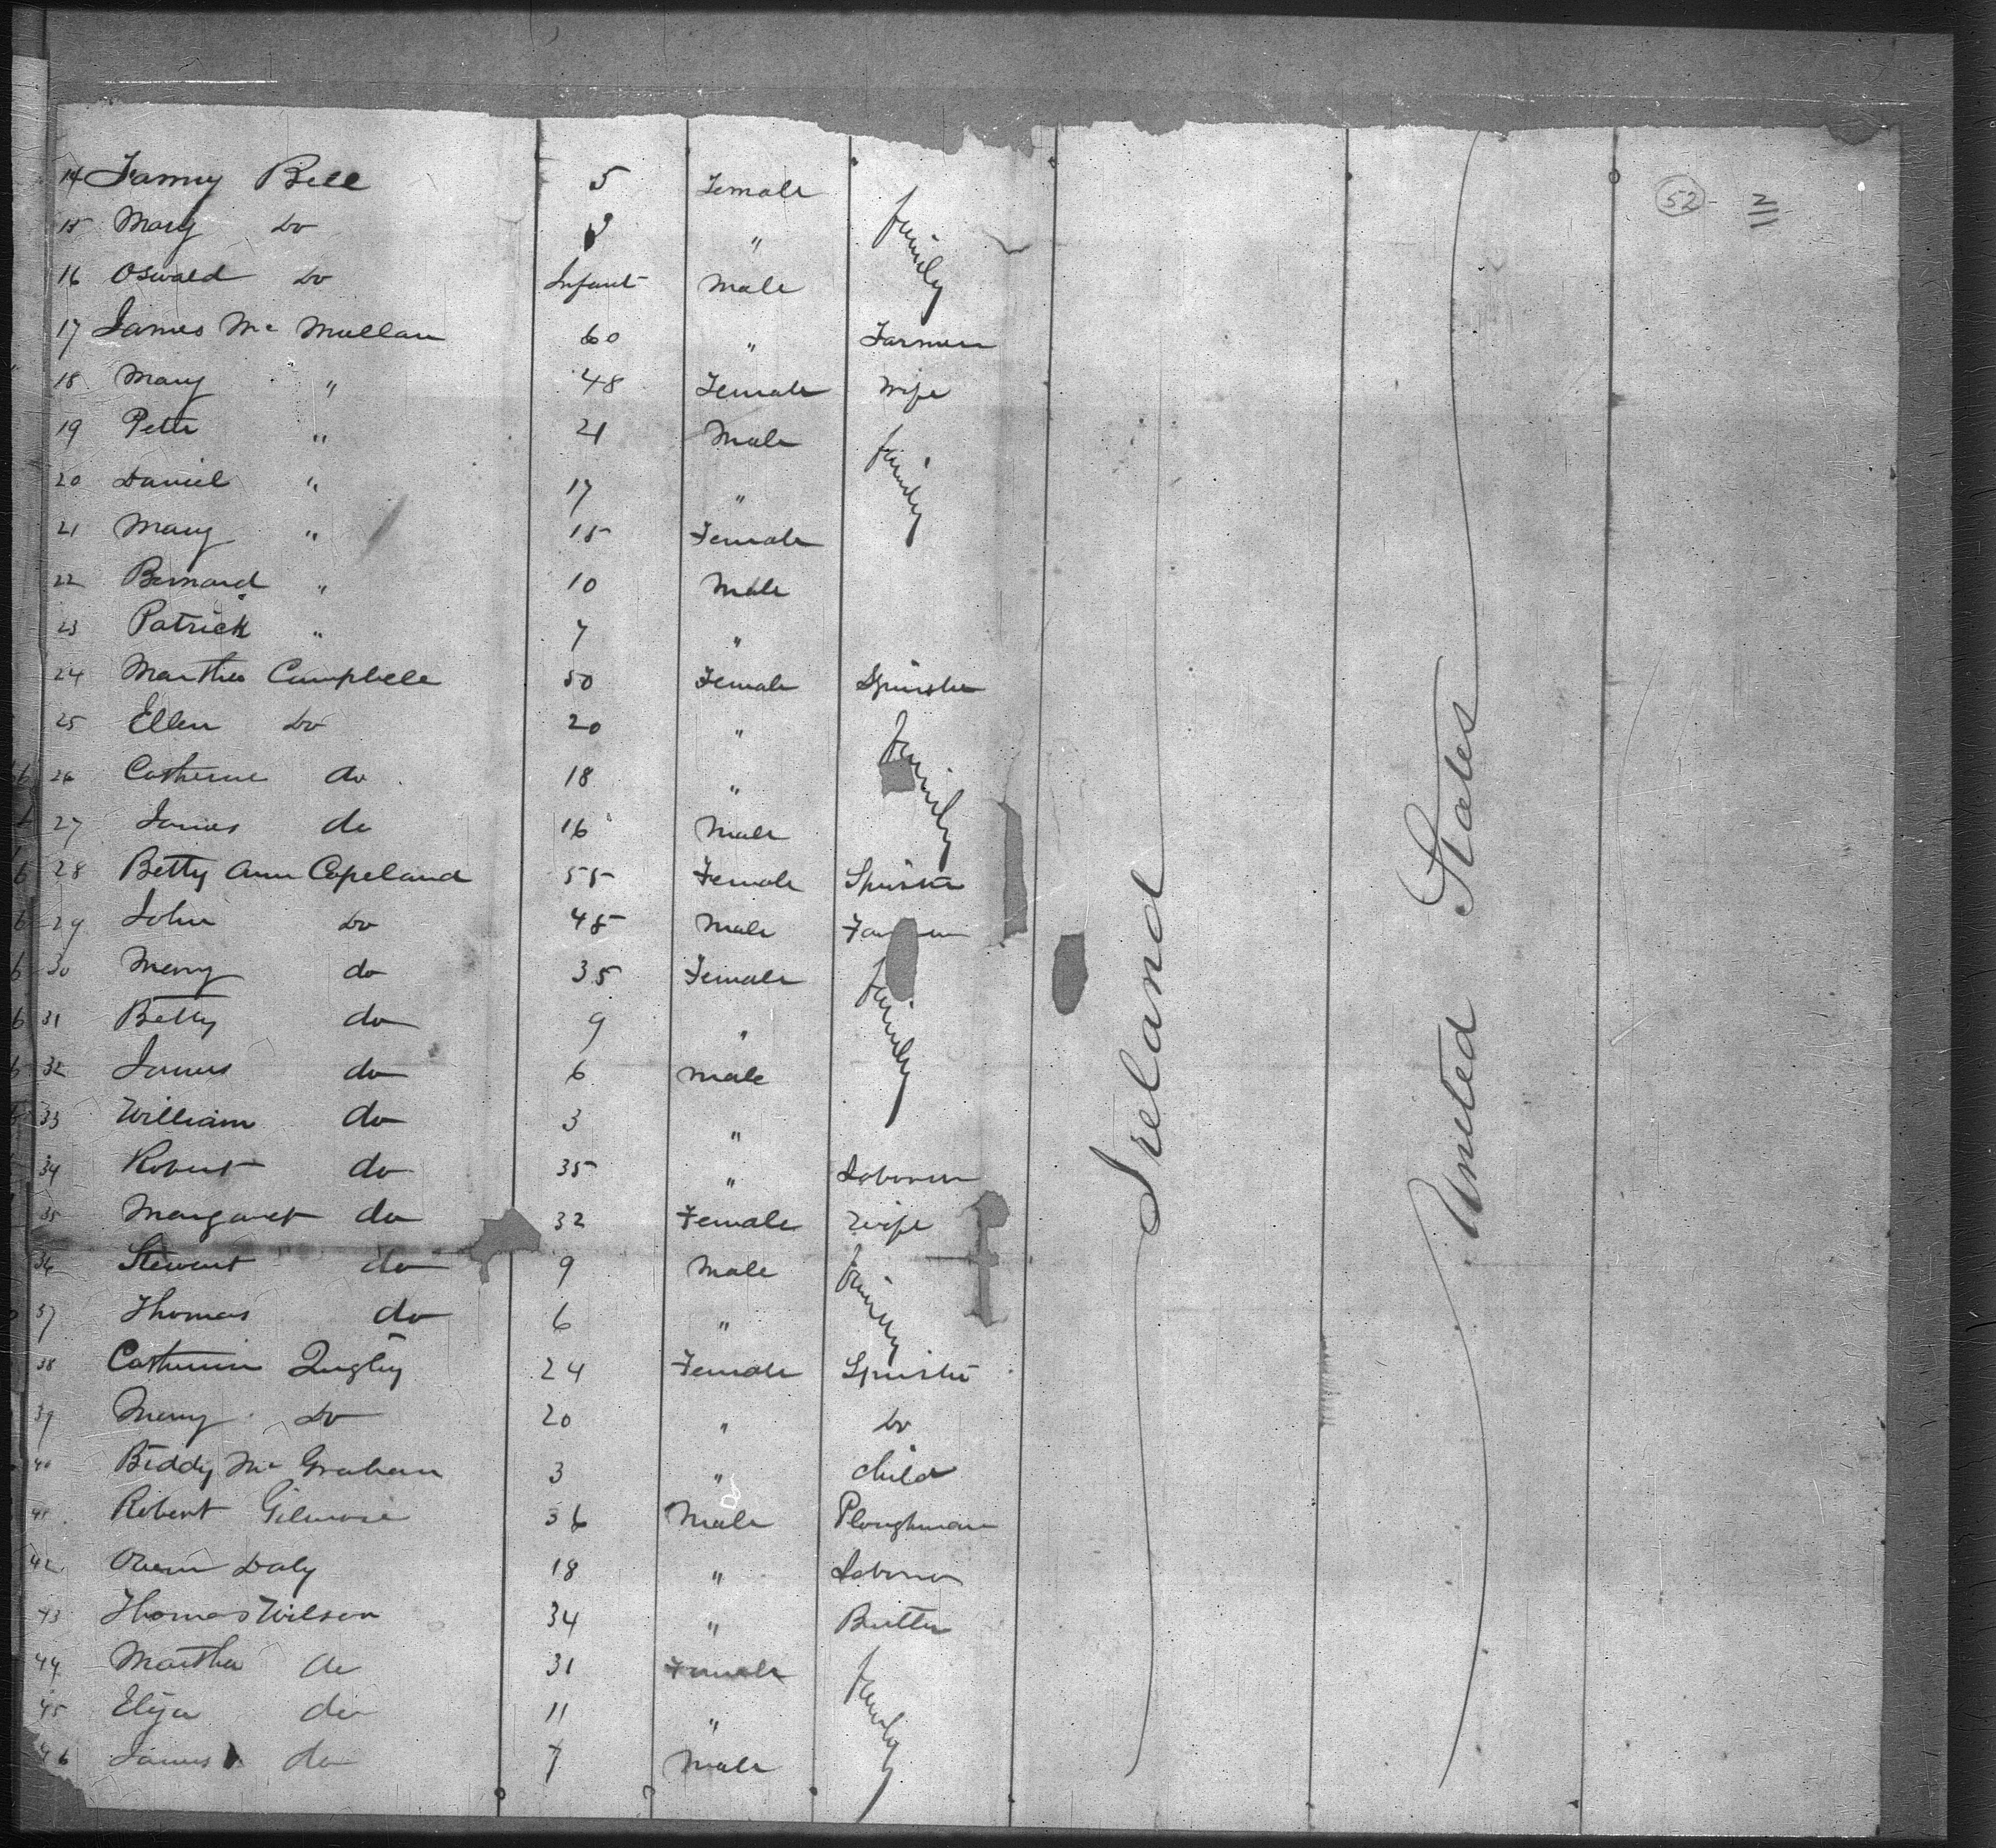 52 - 2
14 Fanny Bell 5 Female
15 Mary Do " family
16 Oswald Do Infant Male
17 James Mc Mullan 60 " Farmer
18 Mary " 48 Female Wife
19 Peter " 21 Male family
20 Daniel " 17 "
21 Mary " 15 Female
22 Bernard " 10 Male
23 Patrick " 7 "
24 Martha Campbell 50 Female Spinster
25 Ellen Do 20 "
26 Catherine do 18 " family
27 James do 16 Male
28 Betty Ann Copeland 55 Female Spinster
29 John Do 45 Male
30 Mary do 35 Female
31 Betty do 9 " family
32 James do 6 male
33 William do 3 "
34 Robert do 35 " Laborer
35 Margaret do 32 Female Wife
36 Stewart do 9 Male family
37 Thomas do 6 "
38 Catherine Quigley 24 Female Spinster
39 Mary Do 20 " Do
40 Biddy Mc Graham 3 " child
41 Robert Gilmore 36 Male Ploughman
42 Owen Daly 18 " Laborer
43 Thomas Wilson 34 " Butler
44 Martha do 31 Female
45 Eliza do 11 " family
46 James do 7 Male
Ireland
United States